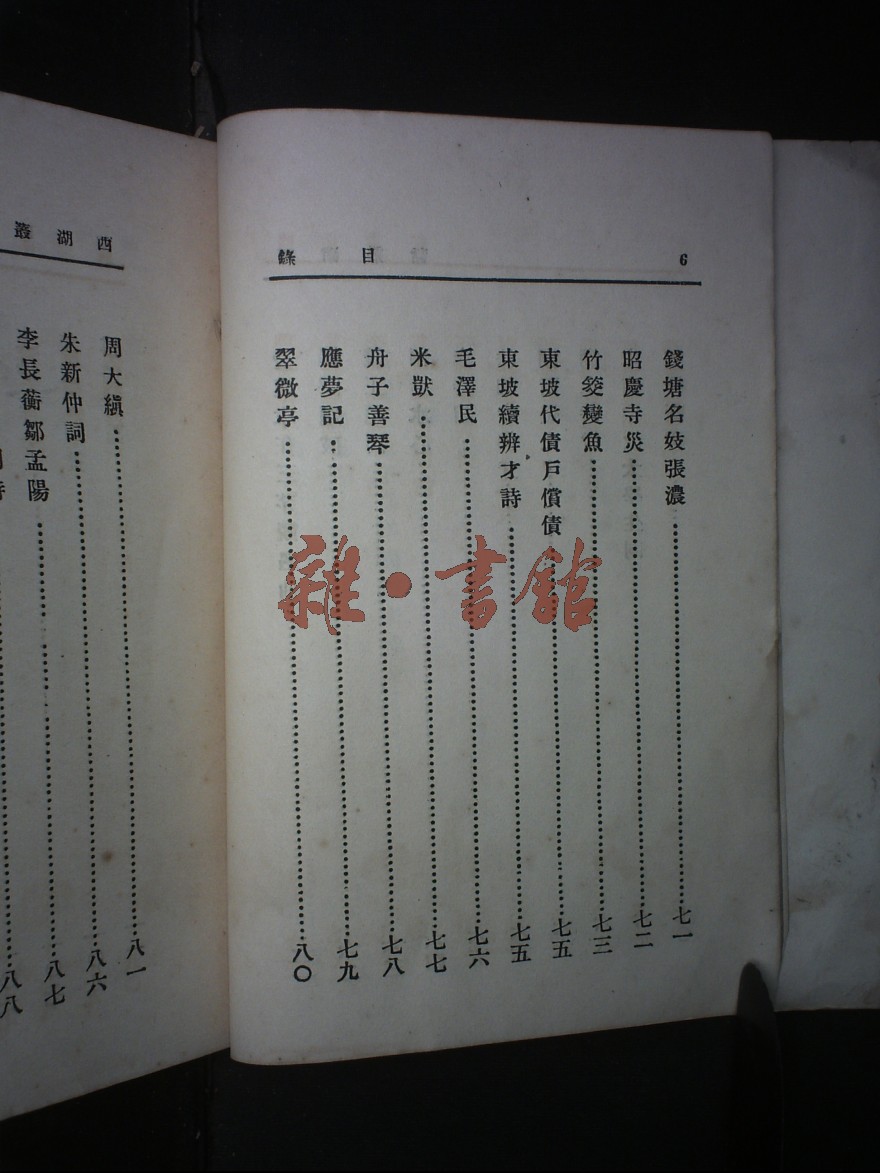 6 目錄
錢塘名妓張濃 七一
昭慶寺災 七二
竹筊變魚 七三
東坡代債戶償債 七五
東坡續辨才詩 七五
毛澤民 七六
米獃 七七
舟子善琴 七八
應夢記 七九
翠微亭 八〇
西湖叢
周大縝 八一
朱新仲詞 八六
李長蘅鄒孟陽 八七
八八
雜·書館